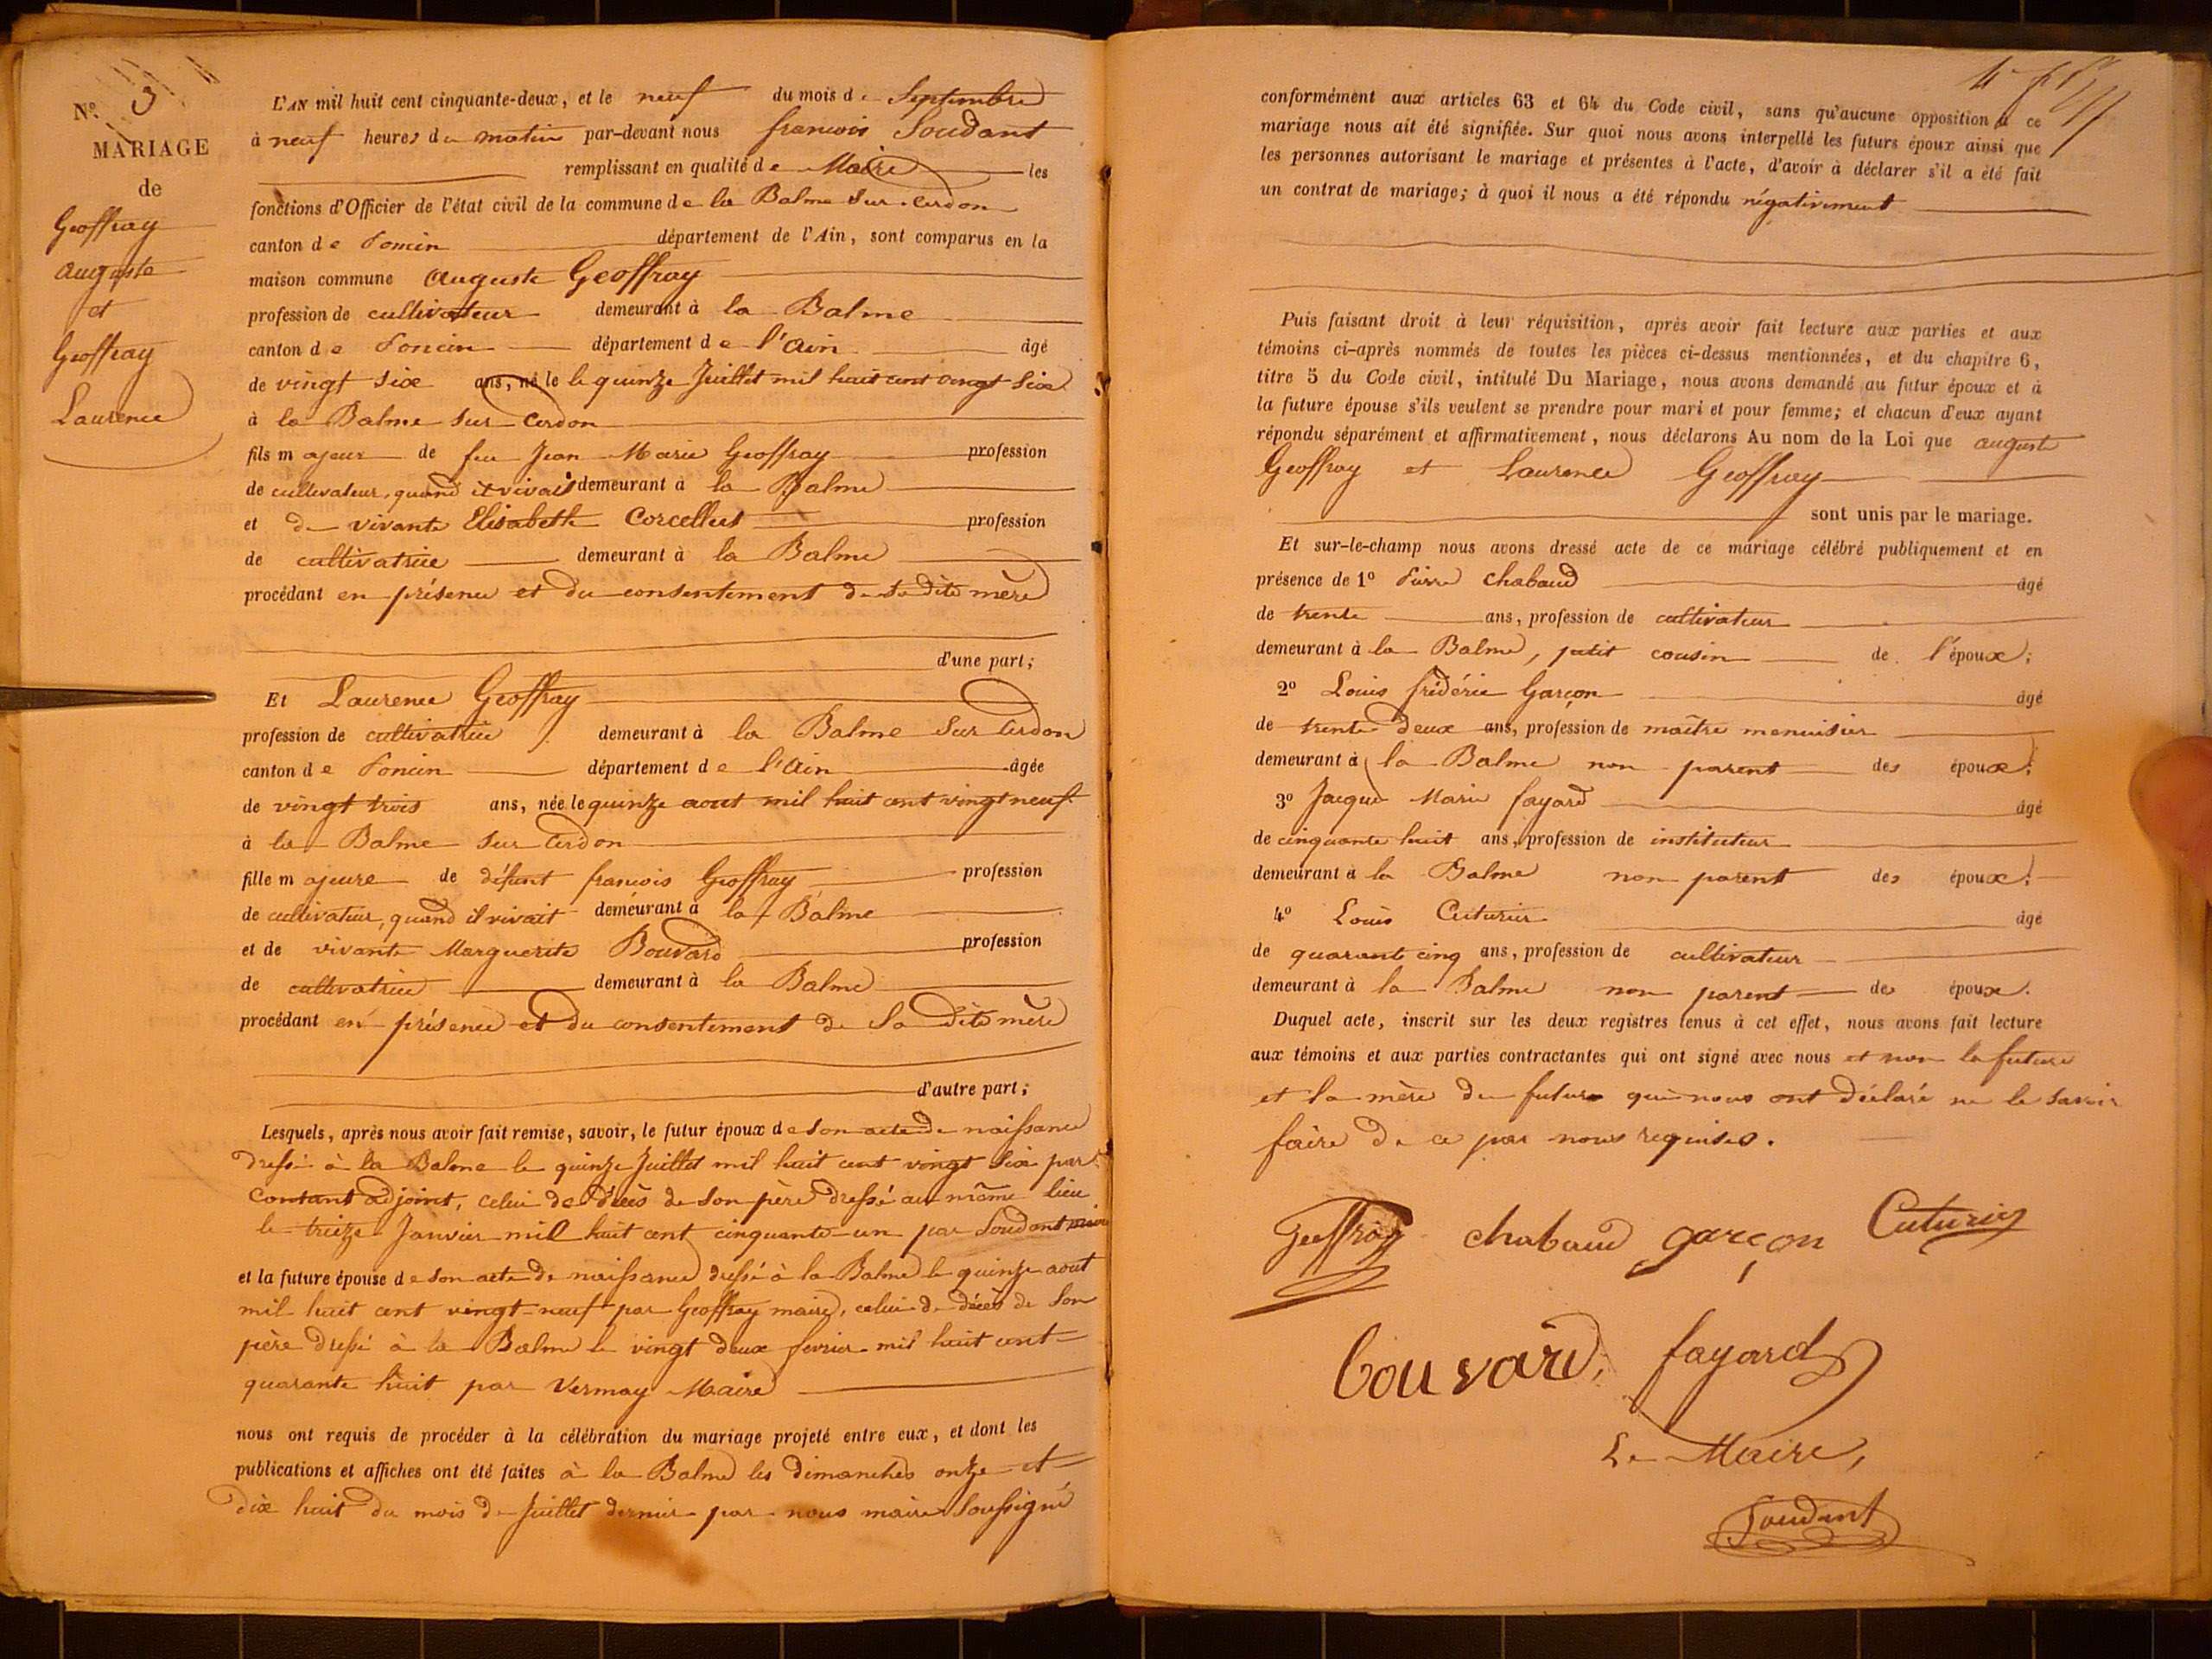 N° 3
MARIAGE
de
Geoffray
auguste
et
Geoffray
Laurence
L'AN mil huit cent cinquante-deux, et le neuf du mois de Septembre
à neuf heures du matin par-devant nous francois Soudant
remplissant en qualité de Maire les
fonctions d'Officier de l'état civil de la commune de la Balme Sur Cerdon
canton de Poncin département de l'Ain, sont comparus en la
maison commune auguste Geoffray
profession de cultivateur demeurant à la Balme
canton de Poncin département de l'ain âgé
de vingt six ans, né le le quinze Juillet mil huit cent vingt Six
à la Balme sur Cerdon
fils majeur de feu Jean Marie Geoffray profession
de cultivateur, quand il vivait demeurant à la Balme
et de vivante Elisabeth Corcellet profession
de cultivatrice demeurant à la Balme
procédant en présence et du consentement de Sa dite mère
d'une part;
Et Laurence Geoffray
profession de cultivatrice demeurant à la Balme Sur Cerdon
canton de Poncin département de l'Ain âgée
de vingt trois ans, née le quinze aout mil huit cent vingt neuf
à la Balme sur Cerdon
fille majeure de défunt francois Geoffray profession
de cultivateur, quand il vivait demeurant à la Balme
et de vivante Marguerite Bouvard profession
de cultivatrice demeurant à la Balme
procédant en présence et du consentement de Sa dite mère
d'autre part;
Lesquels, après nous avoir fait remise, savoir, le futur époux de son acte de naissance
dressé à la Balme le quinze Juillet mil huit cent vingt Six par
Contant adjoint, celui de décès de son père dressé au même lieu
le treize Janvier mil huit cent cinquante-un par Soudant maire
et la future épouse de son acte de naissance dressé à la Balme le quinze aout
mil huit cent vingt-neuf par Geoffray maire, celui de décès de Son
père dressé à la Balme le vingt deux fevrier mil huit cent
quarante huit par Vermay Maire
nous ont requis de procéder à la célébration du mariage projeté entre eux, et dont les
publications et affiches ont été faites à la Balme les dimanches onze et
dix huit du mois de Juillet dernier par nous maire Soussigné
conformément aux articles 63 et 64 du Code civil, sans qu'aucune opposition à ce
mariage nous ait été signifiée. Sur quoi nous avons interpellé les futurs époux ainsi que
les personnes autorisant le mariage et présentes à l'acte, d'avoir à déclarer s'il a été fait
un contrat de mariage; à quoi il nous a été répondu négativement
Puis faisant droit à leur réquisition, après avoir fait lecture aux parties et aux
témoins ci-après nommés de toutes les pièces ci-dessus mentionnées, et du chapitre 6,
titre 5 du Code civil, intitulé Du Mariage, nous avons demandé au futur époux et à
la future épouse s'ils veulent se prendre pour mari et pour femme; et chacun d'eux ayant
répondu séparément et affirmativement, nous déclarons Au nom de la Loi que auguste
Geoffray et Laurence Geoffray
sont unis par le mariage.
Et sur-le-champ nous avons dressé acte de ce mariage célébré publiquement et en
présence de 1° Pierre Chabaud âgé
de trente ans, profession de cultivateur
demeurant à la Balme, petit cousin de l'époux;
2° Louis frédéric Garçon âgé
de trente deux ans, profession de maître menuisier
demeurant à la Balme non parent des époux;
3° Jacque Marie fayard âgé
de cinquante huit ans, profession de instituteur
demeurant à la Balme non parent des époux;
4° Louis Cuturier âgé
de quarante cinq ans, profession de cultivateur
demeurant à la Balme non parent des époux.
Duquel acte, inscrit sur les deux registres tenus à cet effet, nous avons fait lecture
aux témoins et aux parties contractantes qui ont signé avec nous et non la future
et la mère du futur qui nous ont déclaré ne le savoir
faire de ce par nous requises.
Geoffray chabaud garçon Cuturier
bouvard, fayard
Le Maire,
Soudant